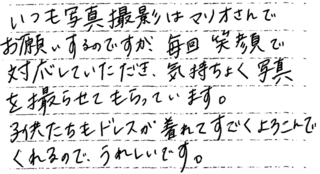 いつも写真撮影はマリオさんで
お願いするのですが、毎回笑顔で
対応していただき、気持ちよく写真
を撮らせてもらっています。
子供たちもドレスが着れてすごくよろこんで
くれるので、うれしいです。